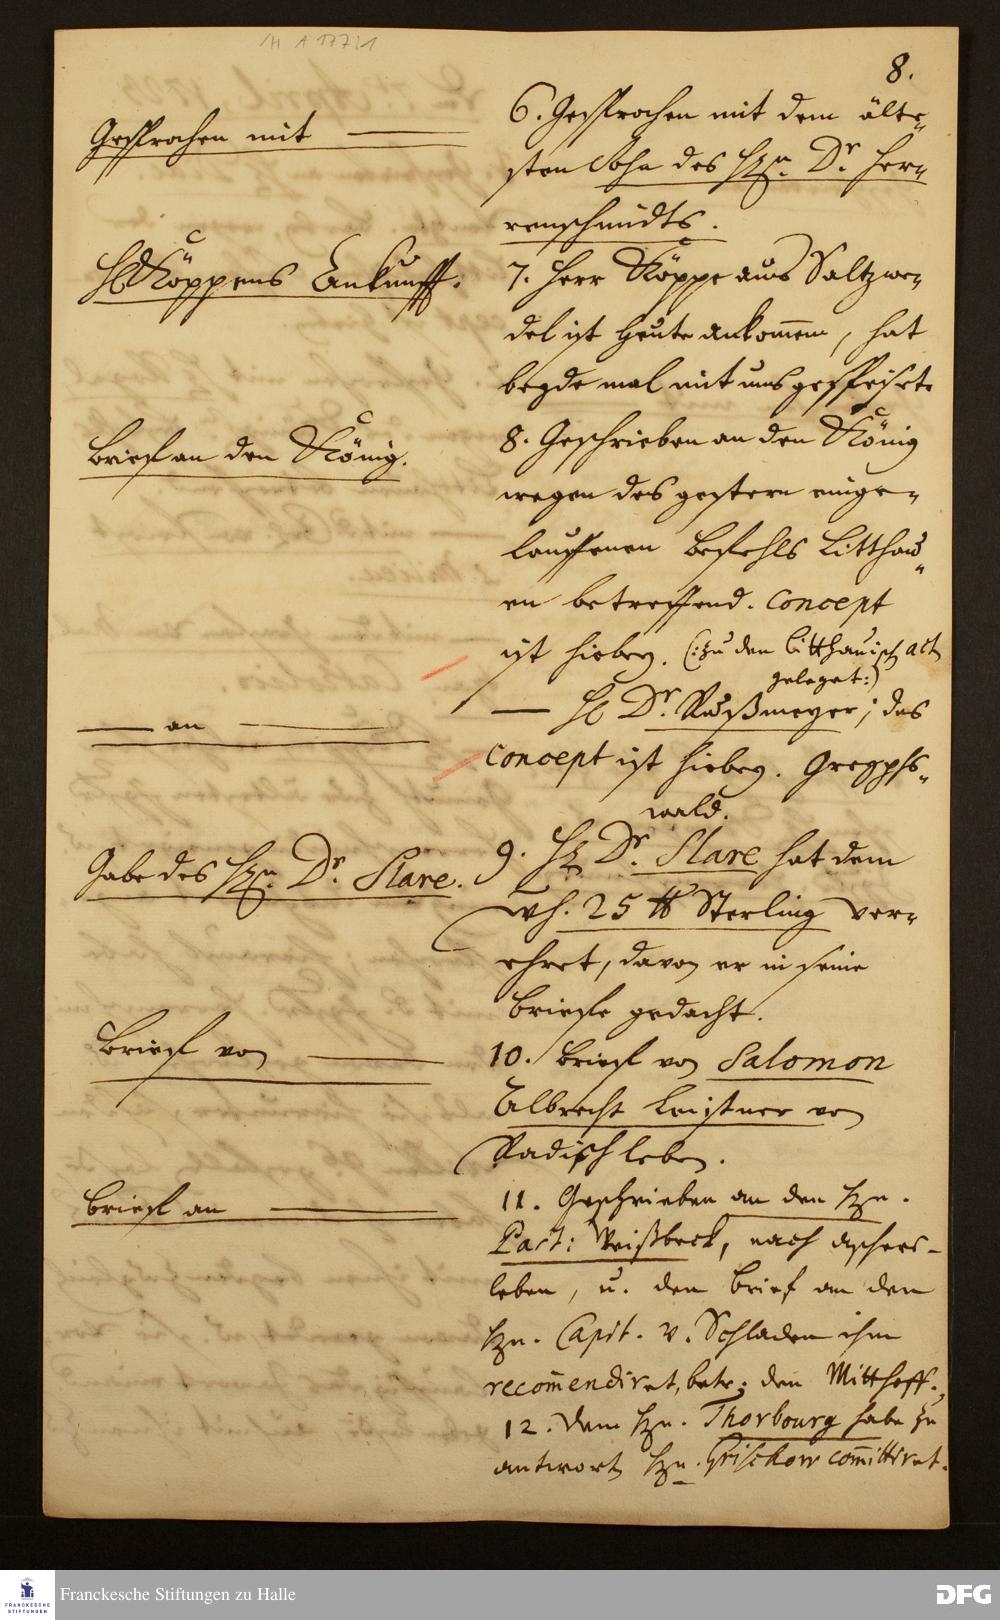 H A 177:1
8.
Gesprochen mit ———
6. Gesprochen mit dem älte-
sten Sohn des Hrn. Dr. Her-
renschmidts.
H. Köppens Ankunfft.
7. Herr Köppe aus Saltzwe-
del ist heute ankommen, hat
beyde mal mit uns gespeiset.
Brief an den König.
8. Geschrieben an den König
wegen des gestern einge-
lauffenen Befehls Litthau-
en betreffend. Concept
ist hiebey. (: zu den Litthauisch. act
geleget :)
—— an ———
— H. Dr. Rußmeyer; das
Concept ist hiebey. Greyphs-
wald.
Gabe des Hrn. Dr. Slare.
9. Hr. Dr. Slare hat dem
Wh. 25 ℔ Sterling ver-
ehret, davon er in seine
Briefe gedacht.
Brief von ———
10. Brief von Salomon
Albrecht Leistner von
Radischleben.
Brief an ———
11. Geschrieben an den Hrn.
Past: Weißbeck, nach Aschers-
leben, u. den Brief an den
Hrn. Capit. v. Schladen ihm
recom̄endiret, betr: den Mitthoff.
12. Dem Hrn. Thorbourg habe zu
antworten Hrn. Grischow com̄ittiret.
Franckesche Stiftungen zu Halle
FRANCKESCHE
STIFTUNGEN
DFG